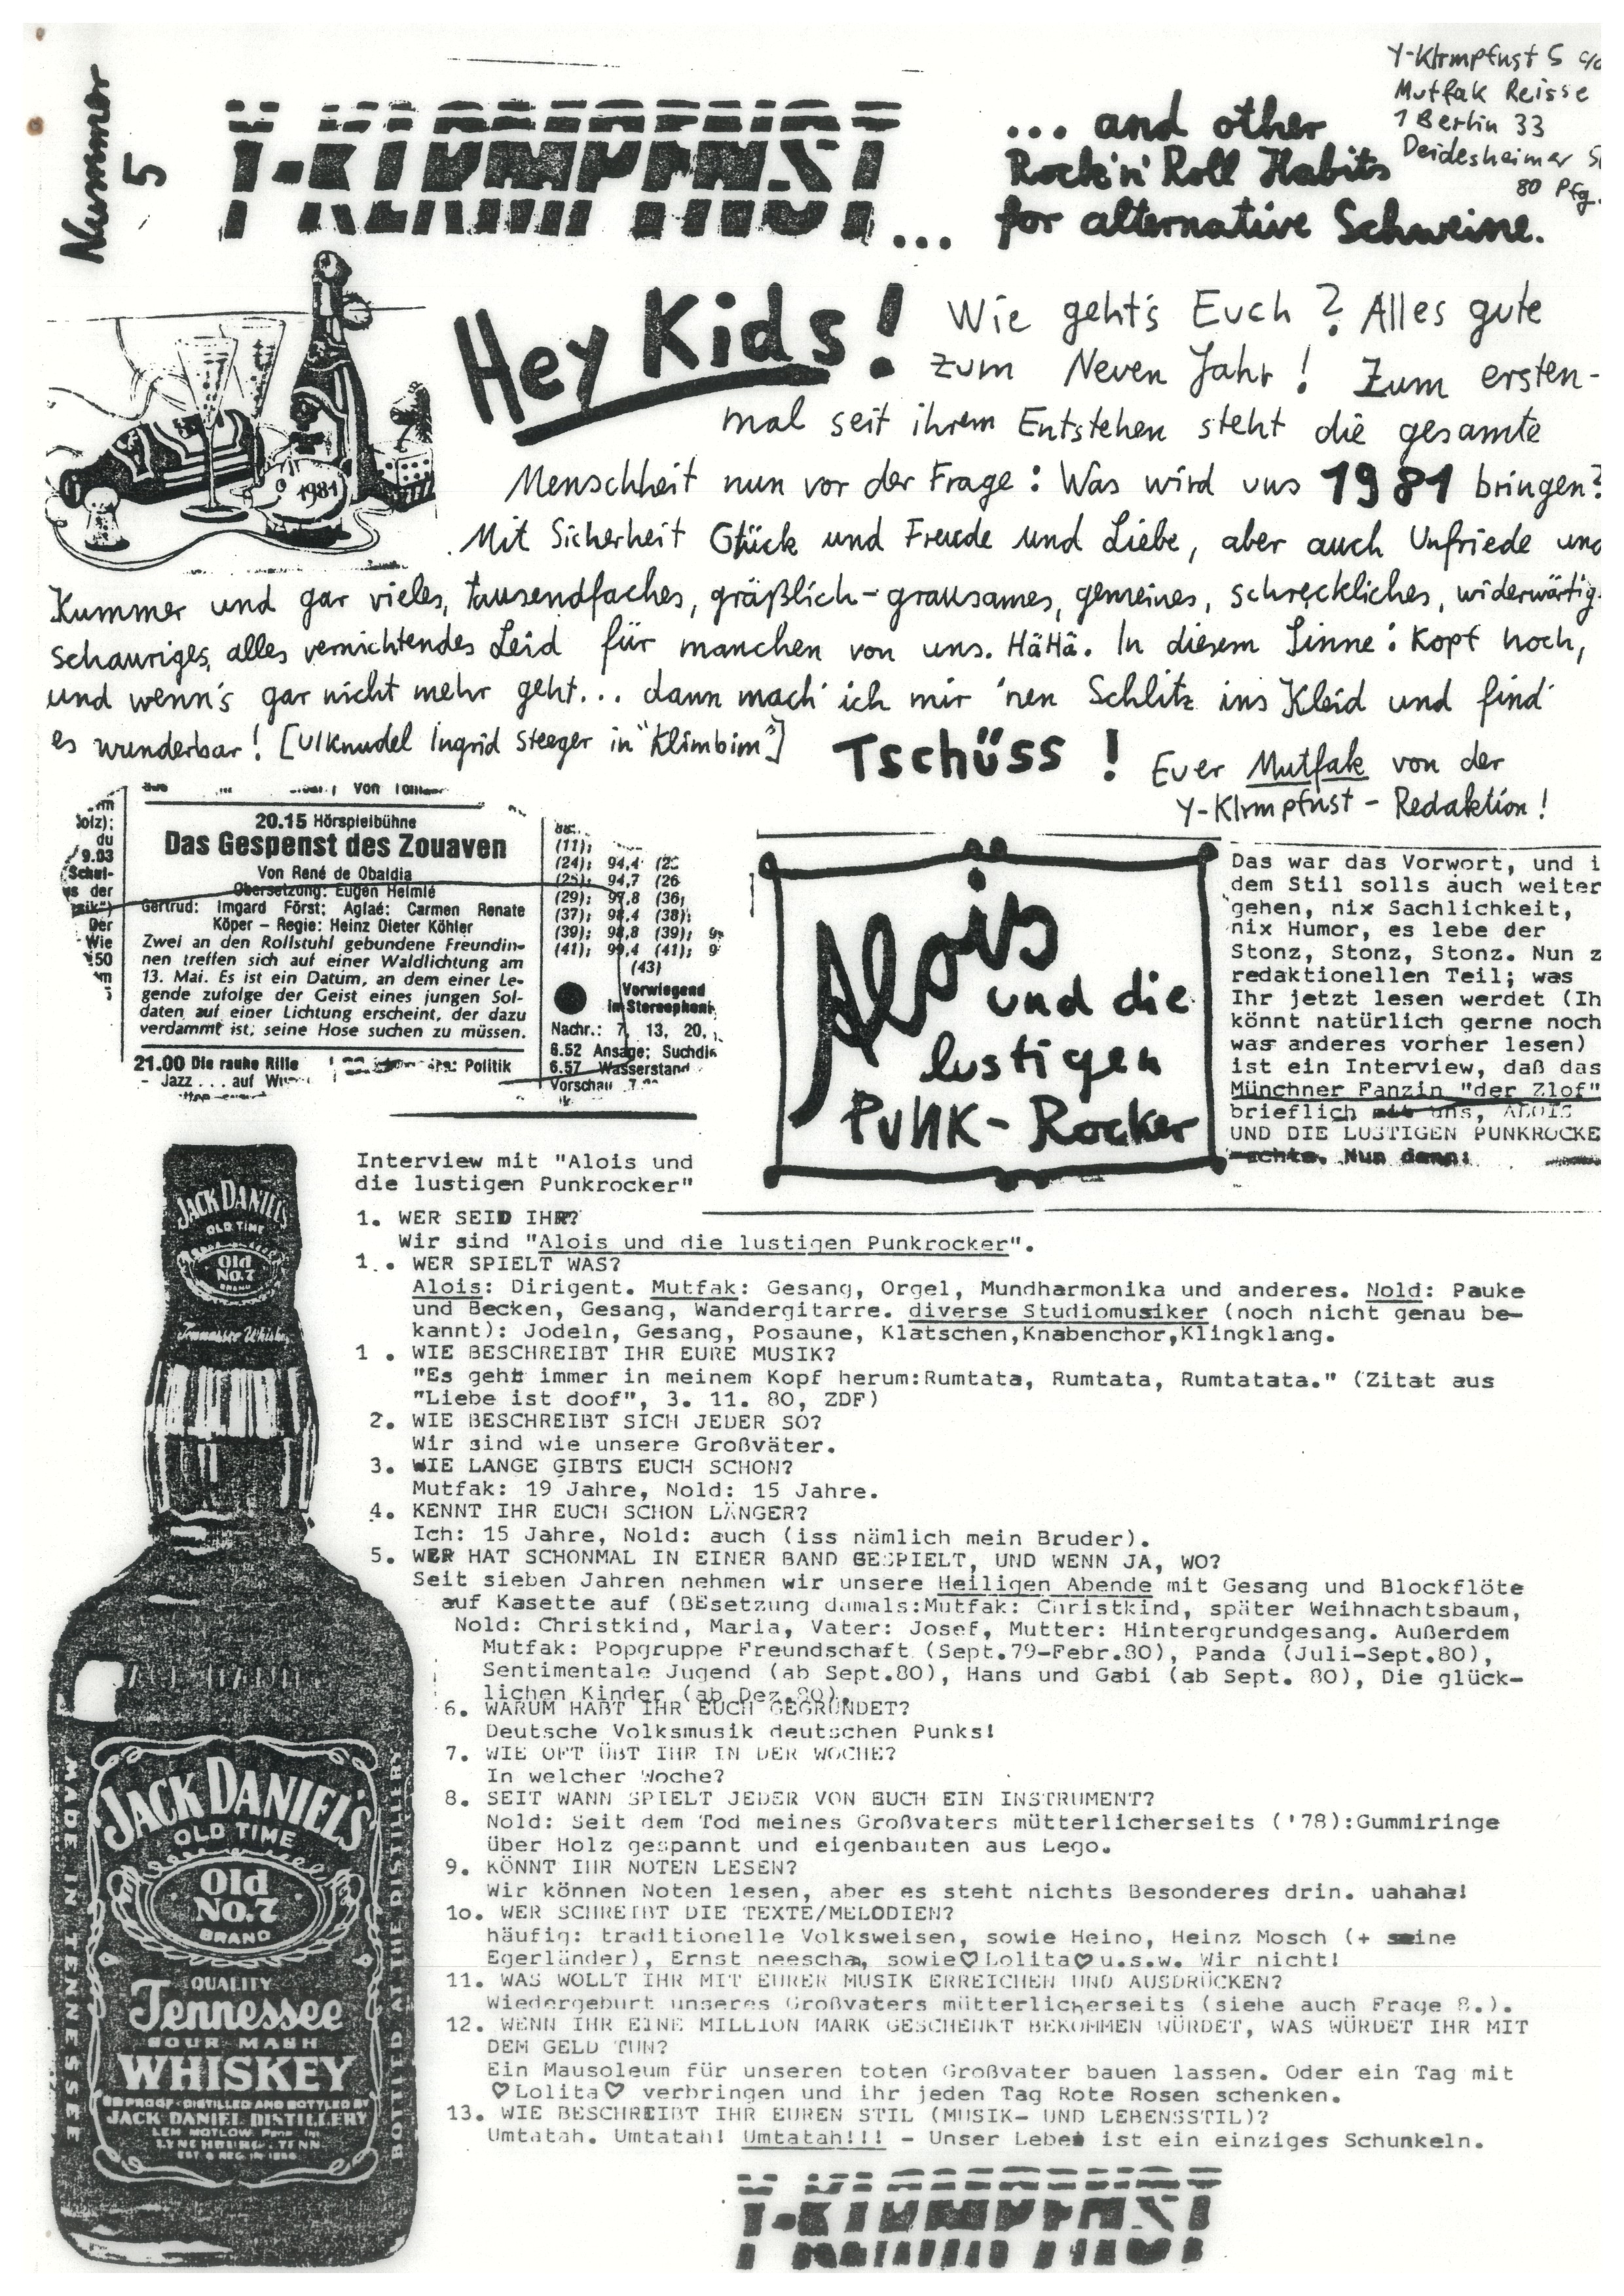 Nummer
5
Y-KLRMPFNST...
... and other
Rock'n' Roll Habits
for alternative Schweine.
Y-Klrmpfnst 5 c/o
Mutfak Reisse
1 Berlin 33
Deidesheimer
80 Pfg.
Hey Kids! Wie geht's Euch? Alles gute
zum Neuen Jahr! Zum ersten-
mal seit ihrem Entstehen steht die gesamte
Menschheit nun vor der Frage: Was wird uns 1981 bringen?
Mit Sicherheit Glück und Freude und Liebe, aber auch Unfriede und
Kummer und gar vieles, tausendfaches, gräßlich-grausames, gemeines, schreckliches, widerwärtig-
schauriges, alles vernichtendes Leid für manchen von uns. HäHä. In diesem Sinne: Kopf hoch,
und wenn's gar nicht mehr geht... dann mach' ich mir 'nen Schlitz ins Kleid und find'
es wunderbar! [Ulknudel Ingrid Steeger in "Klimbim"]
Tschüss!
Euer Mutfak von der
Y-Klrmpfnst-Redaktion!
1981
20.15 Hörspielbühne
Das Gespenst des Zouaven
Von René de Obaldia
Übersetzung: Eugen Helmlé
Gertrud: Imgard Först; Aglaé: Carmen Renate
Köper - Regie: Heinz Dieter Köhler
Zwei an den Rollstuhl gebundene Freundin-
nen treffen sich auf einer Waldlichtung am
13. Mai. Es ist ein Datum, an dem einer Le-
gende zufolge der Geist eines jungen Sol-
daten auf einer Lichtung erscheint, der dazu
verdammt ist, seine Hose suchen zu müssen.
21.00 Die rauhe Rille
- Jazz . . . auf
Politik
(11);
(24); 94,4
(25); 94,7 (26
(29); 97,8 (36;
(37); 98,4 (38);
(39); 98,8 (39);
(41); 99,4 (41);
(43)
Vorwiegend
in Stereophonie
Nachr.: 7, 13, 20,
6.52 Ansage; Suchdie
6.57 Wasserstand
Vorschau
Alois
und die
lustigen
PUNK-Rocker
Das war das Vorwort, und i
dem Stil solls auch weiter
gehen, nix Sachlichkeit,
nix Humor, es lebe der
Stonz, Stonz, Stonz. Nun z
redaktionellen Teil; was
Ihr jetzt lesen werdet (Ih
könnt natürlich gerne noch
was anderes vorher lesen)
ist ein Interview, daß das
Münchner Fanzin "der Zlof"
brieflich mit uns, ALOIS
UND DIE LUSTIGEN PUNKROCKE
machte. Nun denn:
Interview mit "Alois und
die lustigen Punkrocker"
1. WER SEID IHR?
Wir sind "Alois und die lustigen Punkrocker".
1. WER SPIELT WAS?
Alois: Dirigent. Mutfak: Gesang, Orgel, Mundharmonika und anderes. Nold: Pauke
und Becken, Gesang, Wandergitarre. diverse Studiomusiker (noch nicht genau be-
kannt): Jodeln, Gesang, Posaune, Klatschen,Knabenchor,Klingklang.
1 . WIE BESCHREIBT IHR EURE MUSIK?
"Es geht immer in meinem Kopf herum:Rumtata, Rumtata, Rumtatata." (Zitat aus
"Liebe ist doof", 3. 11. 80, ZDF)
2. WIE BESCHREIBT SICH JEDER SO?
Wir sind wie unsere Großväter.
3. WIE LANGE GIBTS EUCH SCHON?
Mutfak: 19 Jahre, Nold: 15 Jahre.
4. KENNT IHR EUCH SCHON LÄNGER?
Ich: 15 Jahre, Nold: auch (iss nämlich mein Bruder).
5. WER HAT SCHONMAL IN EINER BAND GESPIELT, UND WENN JA, WO?
Seit sieben Jahren nehmen wir unsere Heiligen Abende mit Gesang und Blockflöte
auf Kasette auf (BEsetzung damals:Mutfak: Christkind, später Weihnachtsbaum,
Nold: Christkind, Maria, Vater: Josef, Mutter: Hintergrundgesang. Außerdem
Mutfak: Popgruppe Freundschaft (Sept.79-Febr.80), Panda (Juli-Sept.80),
Sentimentale Jugend (ab Sept.80), Hans und Gabi (ab Sept. 80), Die glück-
lichen Kinder (ab Dez.80).
6. WARUM HABT IHR EUCH GEGRÜNDET?
Deutsche Volksmusik deutschen Punks!
7. WIE OFT ÜBT IHR IN DER WOCHE?
In welcher Woche?
8. SEIT WANN SPIELT JEDER VON EUCH EIN INSTRUMENT?
Nold: Seit dem Tod meines Großvaters mütterlicherseits ('78):Gummiringe
über Holz gespannt und eigenbauten aus Lego.
9. KÖNNT IHR NOTEN LESEN?
Wir können Noten lesen, aber es steht nichts Besonderes drin. uahaha!
1o. WER SCHREIBT DIE TEXTE/MELODIEN?
häufig: traditionelle Volksweisen, sowie Heino, Heinz Mosch (+ seine
Egerländer), Ernst neescha, sowie♡Lolita♡u.s.w. Wir nicht!
11. WAS WOLLT IHR MIT EURER MUSIK ERREICHEN UND AUSDRÜCKEN?
Wiedergeburt unseres Großvaters mütterlicherseits (siehe auch Frage 8.).
12. WENN IHR EINE MILLION MARK GESCHENKT BEKOMMEN WÜRDET, WAS WÜRDET IHR MIT
DEM GELD TUN?
Ein Mausoleum für unseren toten Großvater bauen lassen. Oder ein Tag mit
♡Lolita♡ verbringen und ihr jeden Tag Rote Rosen schenken.
13. WIE BESCHREIBT IHR EUREN STIL (MUSIK- UND LEBENSSTIL)?
Umtatah. Umtatah! Umtatah!!! - Unser Leben ist ein einziges Schunkeln.
Y-KLRMPFNST
JACK DANIEL'S
OLD TIME
Old
No.7
BRAND
Tennessee Whiskey
JACK DANIEL'S
OLD TIME
Old
No.7
BRAND
QUALITY
Tennessee
SOUR MASH
WHISKEY
DISTILLED AND BOTTLED BY
JACK DANIEL DISTILLERY
LEM MOTLOW, Prop. Inc.
LYNCHBURG, TENN.
EST. & REG. IN 1866
MADE IN TENNESSEE
BOTTLED AT THE DISTILLERY